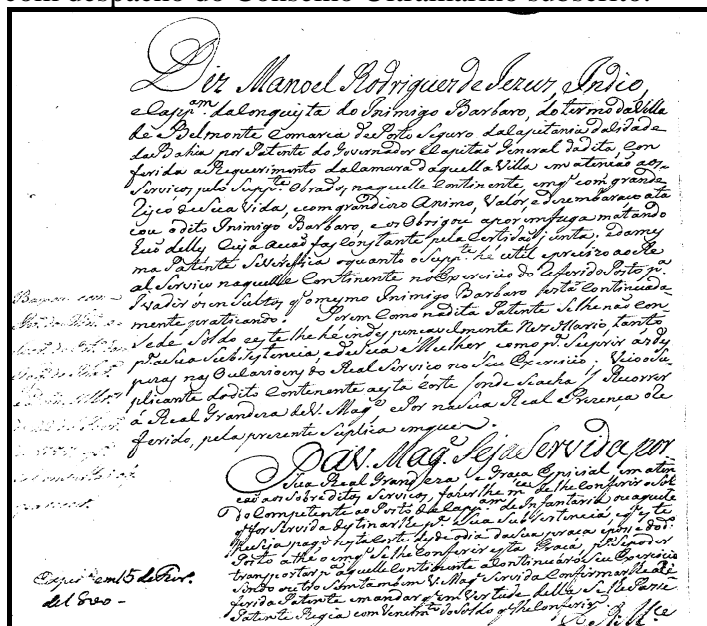 com despacho do Conselho Ultramarino subscrito.
Diz Manoel Rodrigues de Jezus, Indio,
e Cappam. da Conquista do Inimigo Barbaro, do termo da Villa
de Belmonte Comarca de Porto Seguro da Capitania da Cidade
da Bahia por Patente do Governador e Capitaó General da dita Con
ferida a Requerimento da Camara daquella Villa em atençaó aos
Serviços pelo Suppte. Obrados naquelle Continente, em q. com grande
risco de Sua Vida, e com grandioso Animo, Valor, e desembaraço ata
cou o dito Inimigo Barbaro, e os Obrigou a por em fuga matando
hum delles Cuja acçaó faz Constante pela Certidaó junta: e da mes
ma Patente Se Verifica o quanto o Suppte. he util e precizo ao Re
al Serviço naquelle Continente no Exercicio do referido Posto pa.
o mesmo Inimigo Barbaro está Continuada
mente praticando. Porem Como na dita Patente Se lhe naó con
cede Soldo e este lhe hé Necessario, tanto
pa. a Sua Subsistencia, e de Sua Mulher como pa. Suprir as des
pezas nas do Real Serviço no Seu Exercicio: Veio o Su
plicante do dito Continente a esta Corte (onde Se acha) Recorrer
á Real Grandeza de V. Mage. e Por na Sua Real Prezença o re
ferido, pela prezente Suplica em que
P. a V. Mage. Seja Servida por
Sua Real Grandeza e Graça Especial, em aten
çaó aos Sobreditos Serviços, fazer lhe mce. de lhe conferir o Sol
do Competente ao Posto de Cappam. de Infantaria ou aquele
q. for Servida destinar lhe pa. a Sua Subsistencia, e q. este
lhe Seja pago nesta Corte desde o dia da Sua praça e posse do do.
Posto athé o em q. Se lhe Conferir esta Graça, pa. Se poder
transportar pa. aquelle Continente a Continuar o Seu Exercicio
Sendo outro Sim tambem V. Mage. Servida Confirmar lhe a Re
ferida Patente mandar q. em Virtude della Se lhe Passe
Patente Regia com Vencimto. do Soldo q. lhe Conferir
E. R. Mce.
em 15 de Fevr.
de 1800 -